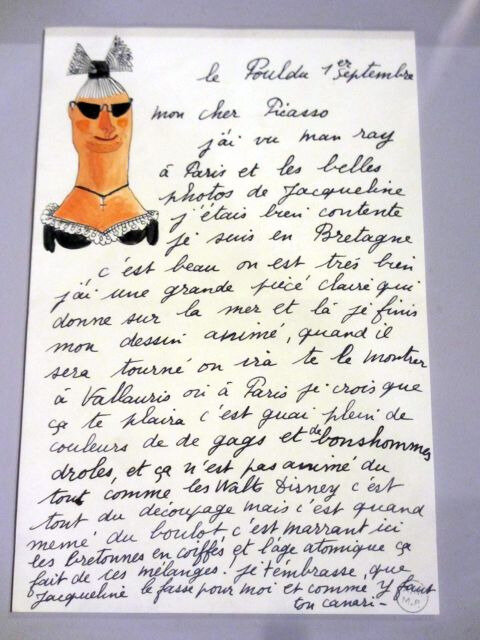 le Pouldu 1er Septembre
mon cher Picasso
j'ai vu man ray
à Paris et les belles
photos de Jacqueline
j'étais bien contente
je suis en Bretagne
c'est beau on est très bien
j'ai une grande pièce claire qui
donne sur la mer et là je finis
mon dessin animé, quand il
sera tourné on ira te le montrer
à Vallauris ou à Paris je crois que
ça te plaira c'est guai plein de
couleurs de de gags et de bonshommes
droles, et ça n'est pas animé du
tout comme les Walt Disney c'est
tout du découpage mais c'est quand
memé du boulot, c'est marrant ici
les Bretonnes en coiffes et l'age atomique ça
fait de ces mélanges! je t'émbrasse, que
Jacqueline le fasse pour moi et comme y faut
ton canari -
M.P